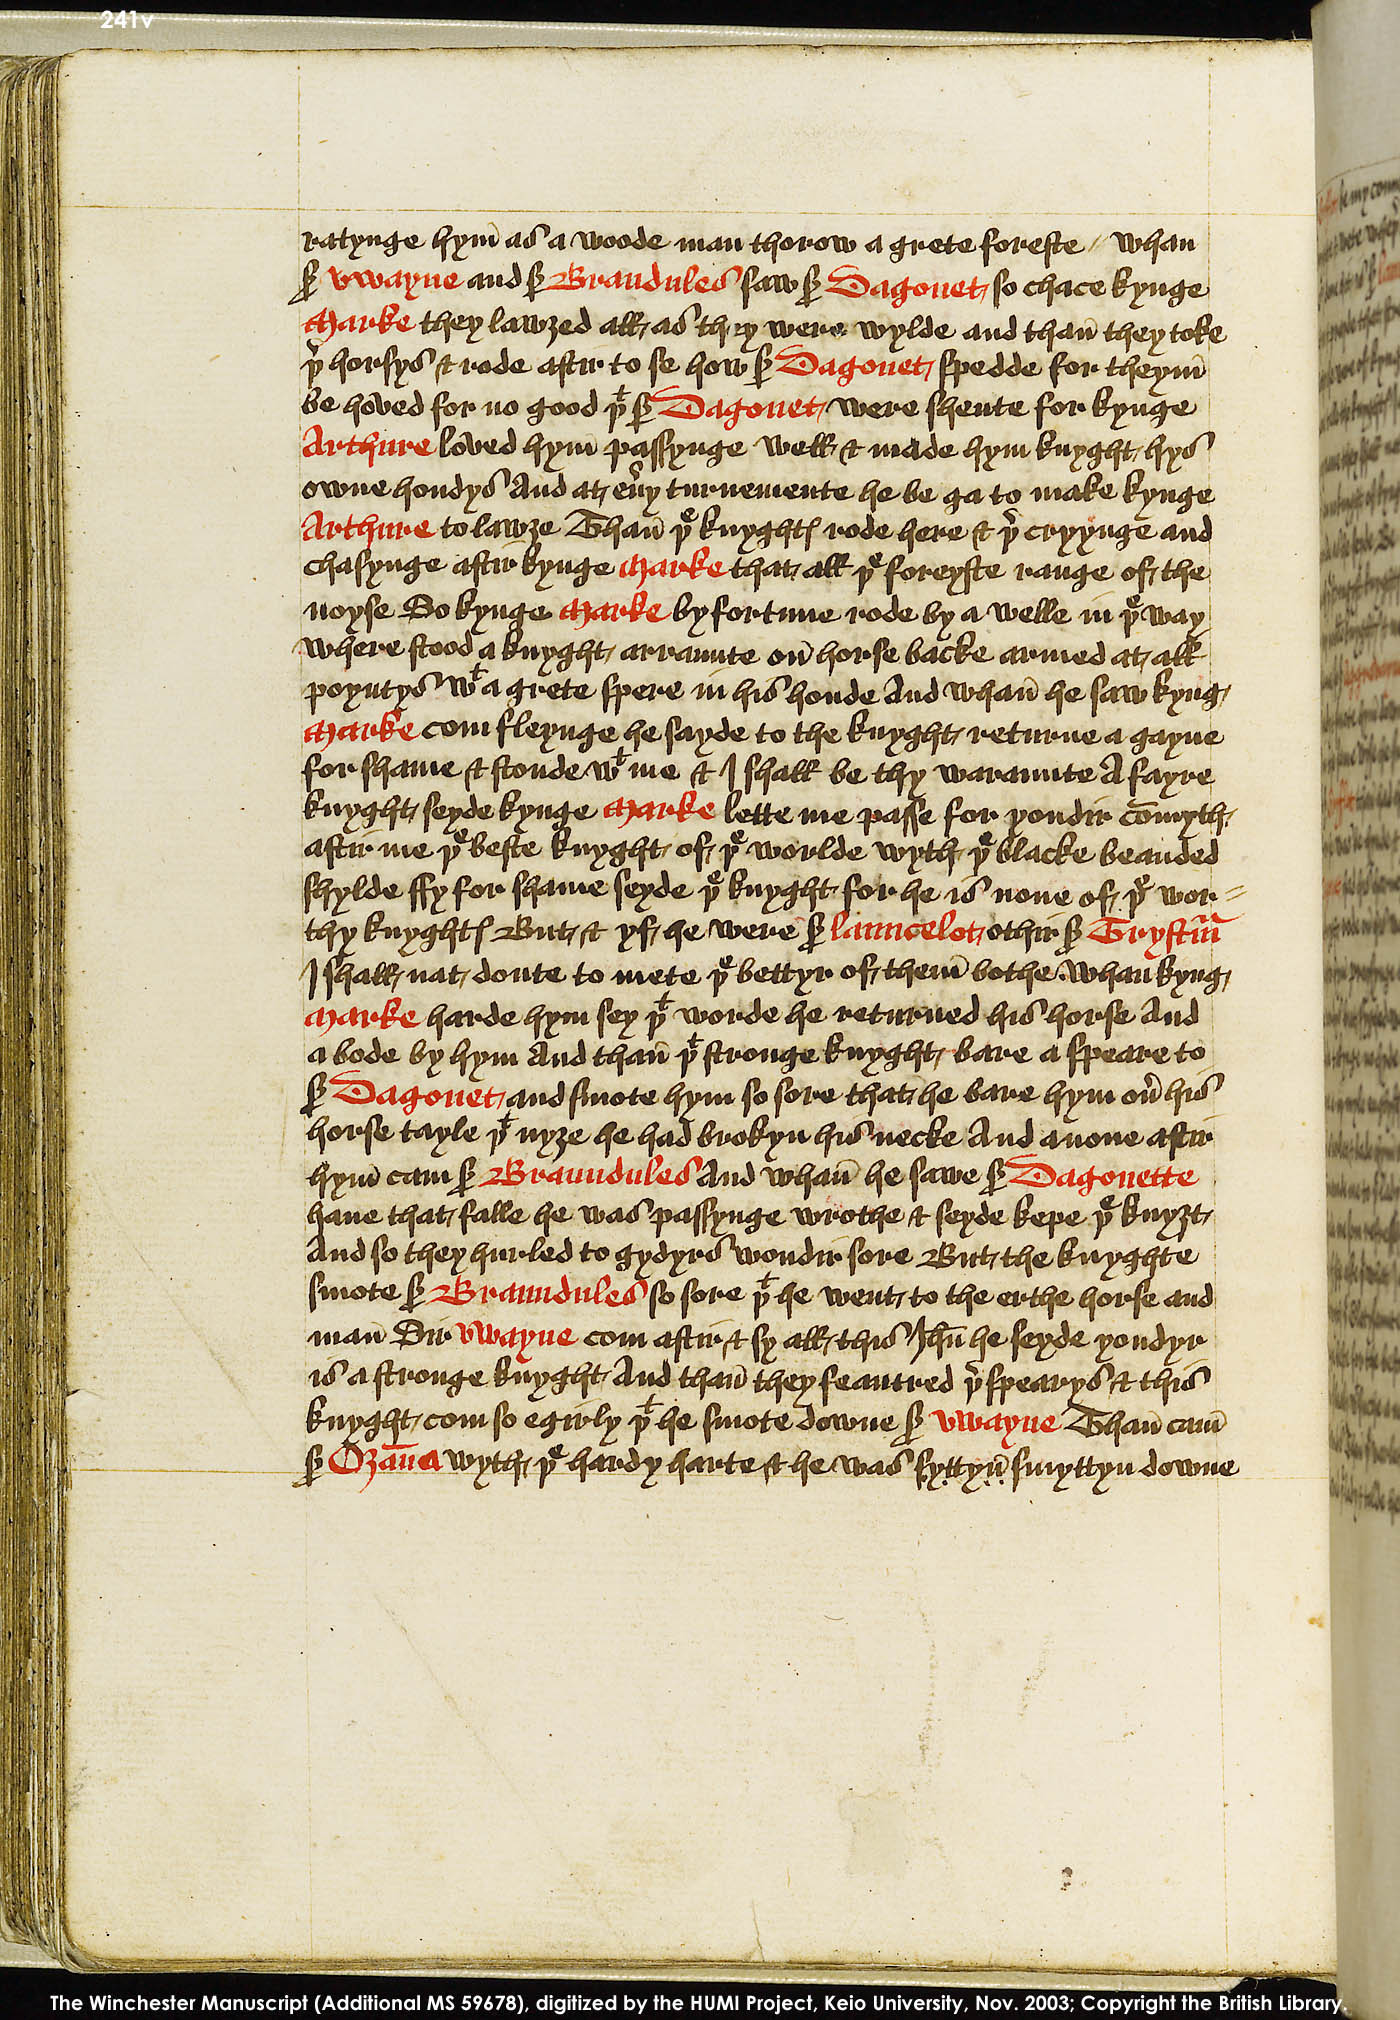 241v
ratynge hym̄ as a woode man thorow a grete foreste // whan
sẜ vwayne and sẜ Brandules saw sẜ Dagonet so chace kynge
Marke they lawȝed all as they were wylde and than̄ they toke
þʳ horsys & rode aftir to se how sẜ Dagonet spedde for theym̄
be hoved for no good þᵗ sẜ Dagonet were shente for kynge
Arthure loved hym̄ passynge well & made hym knyght hys
owne hondys And at eūy turnemente he be ga to make kynge
Arthure to lawȝe Than̄ þᵉ knyghtꝭ rode here & þʳ cryynge and
chasynge aftir kynge Marke that all þᵉ foreyste range of the
noyse So kynge Marke by fortune rode by a welle in þᵉ way
where stood a knyght arraunte on̄ horse backe armed at all
poyntys wᵗ a grete spere in his honde And whan̄ he saw kyng
Marke com fleynge he sayde to the knyght returne a gayne
for shame & stonde wᵗ me & I shall be thy waraunte A fayre
knyght seyde kynge Marke lette me passe for yondir com̄yth
aftir me þᵉ beste knyght of þᵉ worlde wyth þᵉ blacke beanded
shylde ffy for shame seyde þᵉ knyght for he is none of þᵉ wor=
thy knyghtꝭ But & yf he were sẜ launcelot othir sẜ Trystrām
I shall nat doute to mete þᵉ bettyr of them̄ bothe whan kyng
Marke harde hym sey þᵗ worde he returned his horse And
a bode by hym And than̄ þᵗ stronge knyght bare a speare to
sẜ Dagonet and smote hym so sore that he bare hym oūʳ his
horse tayle þᵗ nyȝe he had brokyn his necke And anone aftir
hym̄ cam sẜ Braundules And whan̄ he sawe sẜ Dagonette
haue that falle he was passynge wrothe & seyde kepe þᵉ knyȝt
And so they hurled to gydyrs wondir sore But the knyghte
smote sẜ Braundules so sore þᵗ he went to the erthe horse and
man̄ Sir vwayne com aftir & sy all this Jhū he seyde yondyr
is a stronge knyght And than̄ they feautred þʳ spearys & this
knyght com so egirly þᵗ he smote downe sẜ vwayne Than̄ cam̄
sẜ Ozan̄a wyth þᵉ hardy harte & he was syttyn̄ smyttyn downe
The Winchester Manuscript (Additional MS 59678), digitized by the HUMI Project, Keio University, Nov. 2003; Copyright the British Library.